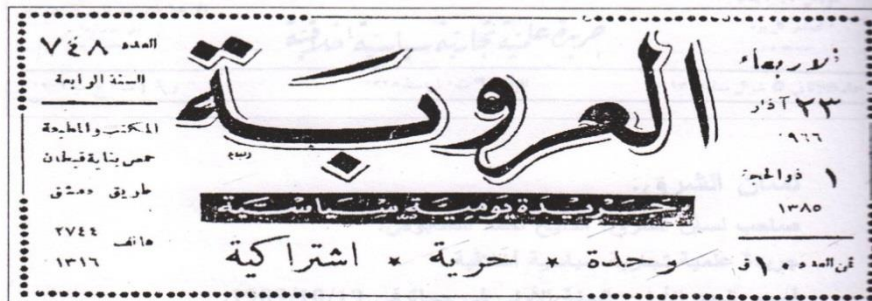 الاربعاء
٢٣ آذار
٩٦٦
١ ذوالحجة
١٣٨٥
ثمن العدد ١٠ ق
العروبة
جريدة يومية سياسية
وحدة * حرية * اشتراكية
العدد ٧٤٨
السنة الرابعة
المكتب والمطبعة
حمص بناية قبطان
طريق دمشق
هاتف ٢٧٤٤
١٣١٦